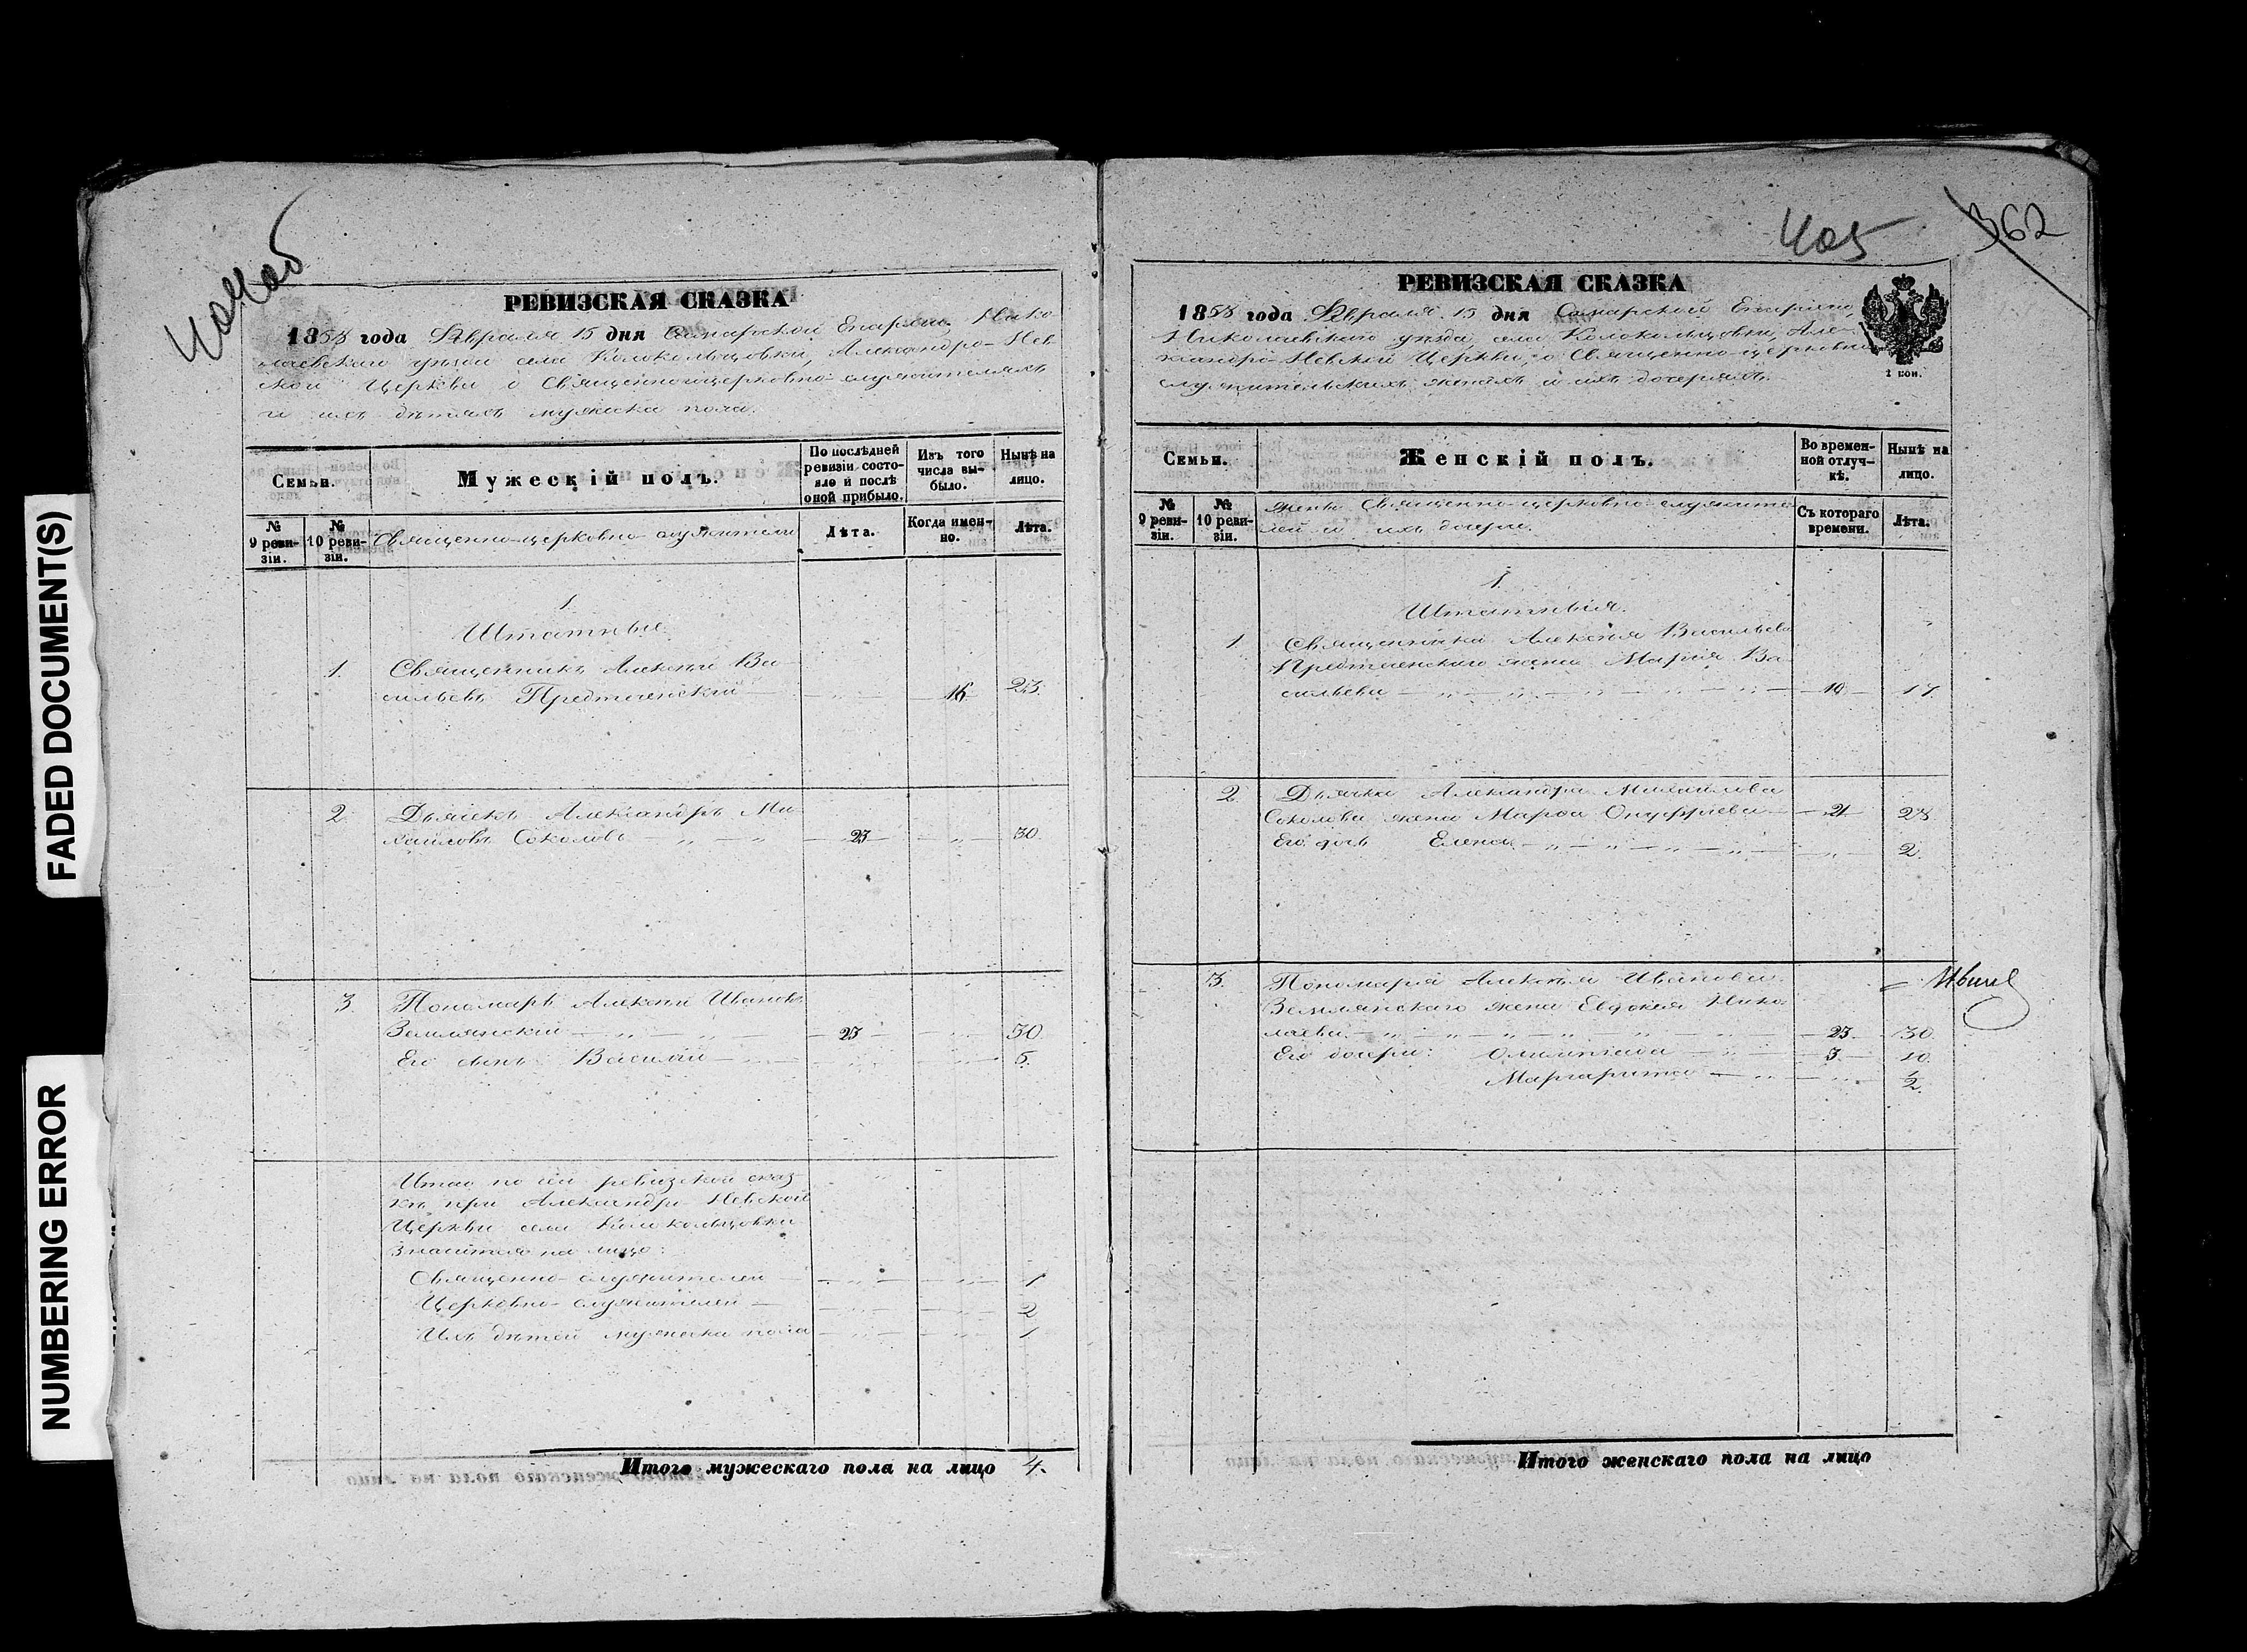 FADED DOCUMENT(S)
NUMBERING ERROR
404об
РЕВИЗСКАЯ СКАЗКА
1858 года Февраля 15 дня Самарской Епархіи, Нико-
лаевскаго уѣзда села Колокольцовки, Александро-Нев-
ской Церкви о Священноцерковно-служителяхъ
и ихъ дѣтяхъ мужеска пола.
Семьи.
Мужескій полъ.
По послѣдней ревизіи состо-
яло и послѣ оной прибыло.
Изъ того числа вы-
было.
Нынѣ на лицо.
№ 9 реви-
зіи.
№ 10 реви-
зіи.
Священно-церковно служители
Лѣта.
Когда имен-
но.
Лѣта.
1.
Штатные.
1. Священникъ Алексѣй Ва-
сильевъ Предтеченскій — 16 23.
2. Дьячекъ Александръ Ми-
хайловъ Соколовъ — „ — „ — 23 — „ — 30.
3. Пономарь Алексѣй Ивановъ
Землянскій — „ — „ — 23 — „ — 30.
Его сынъ Василій — „ — „ — „ — 5.
Итого по сей ревизской сказ-
кѣ при Александро Невской
Церкви села Колокольцовки
значится на лицо:
Священно-служителей — „ — „ — 1
Церковно-служителей — „ — „ — 2
Ихъ дѣтей мужеска пола — „ — „ — 1
Итого мужескаго пола на лицо 4.
405
362
РЕВИЗСКАЯ СКАЗКА
1858 года Февраля 15 дня Самарской Епархіи,
Николаевскаго уѣзда, села Колокольцовки, Але-
ксандро-Невской Церкви, о Священно-церковно
служительскихъ женахъ и ихъ дочеряхъ.
2 коп.
Семьи.
Женскій полъ.
Во времен-
ной отлуч-
кѣ.
Нынѣ на лицо.
№ 9 реви-
зіи.
№ 10 реви-
зіи.
Жены Священно-церковно-служите-
лей и ихъ дочери.
Съ котораго времени.
Лѣта.
1.
Штатныя.
1. Священника Алексѣя Васильева
Предтеченскаго жена Марія Ва-
сильева — „ — „ — „ — „ — „ — 10 — 17.
2. Дьячка Александра Михайлова
Соколова жена Марѳа Онуфріева — 21 — 28.
Его дочь Елена — „ — „ — „ — „ — „ — 2.
3. Пономаря Алексѣя Иванова
Землянскаго жена Евдокія Нико-
лаева — „ — „ — „ — „ — 23 — 30.
Его дочери: Олимпіада — „ — 3 — 10.
Маргарита — „ — „ — 1/2
Итого женскаго пола на лицо